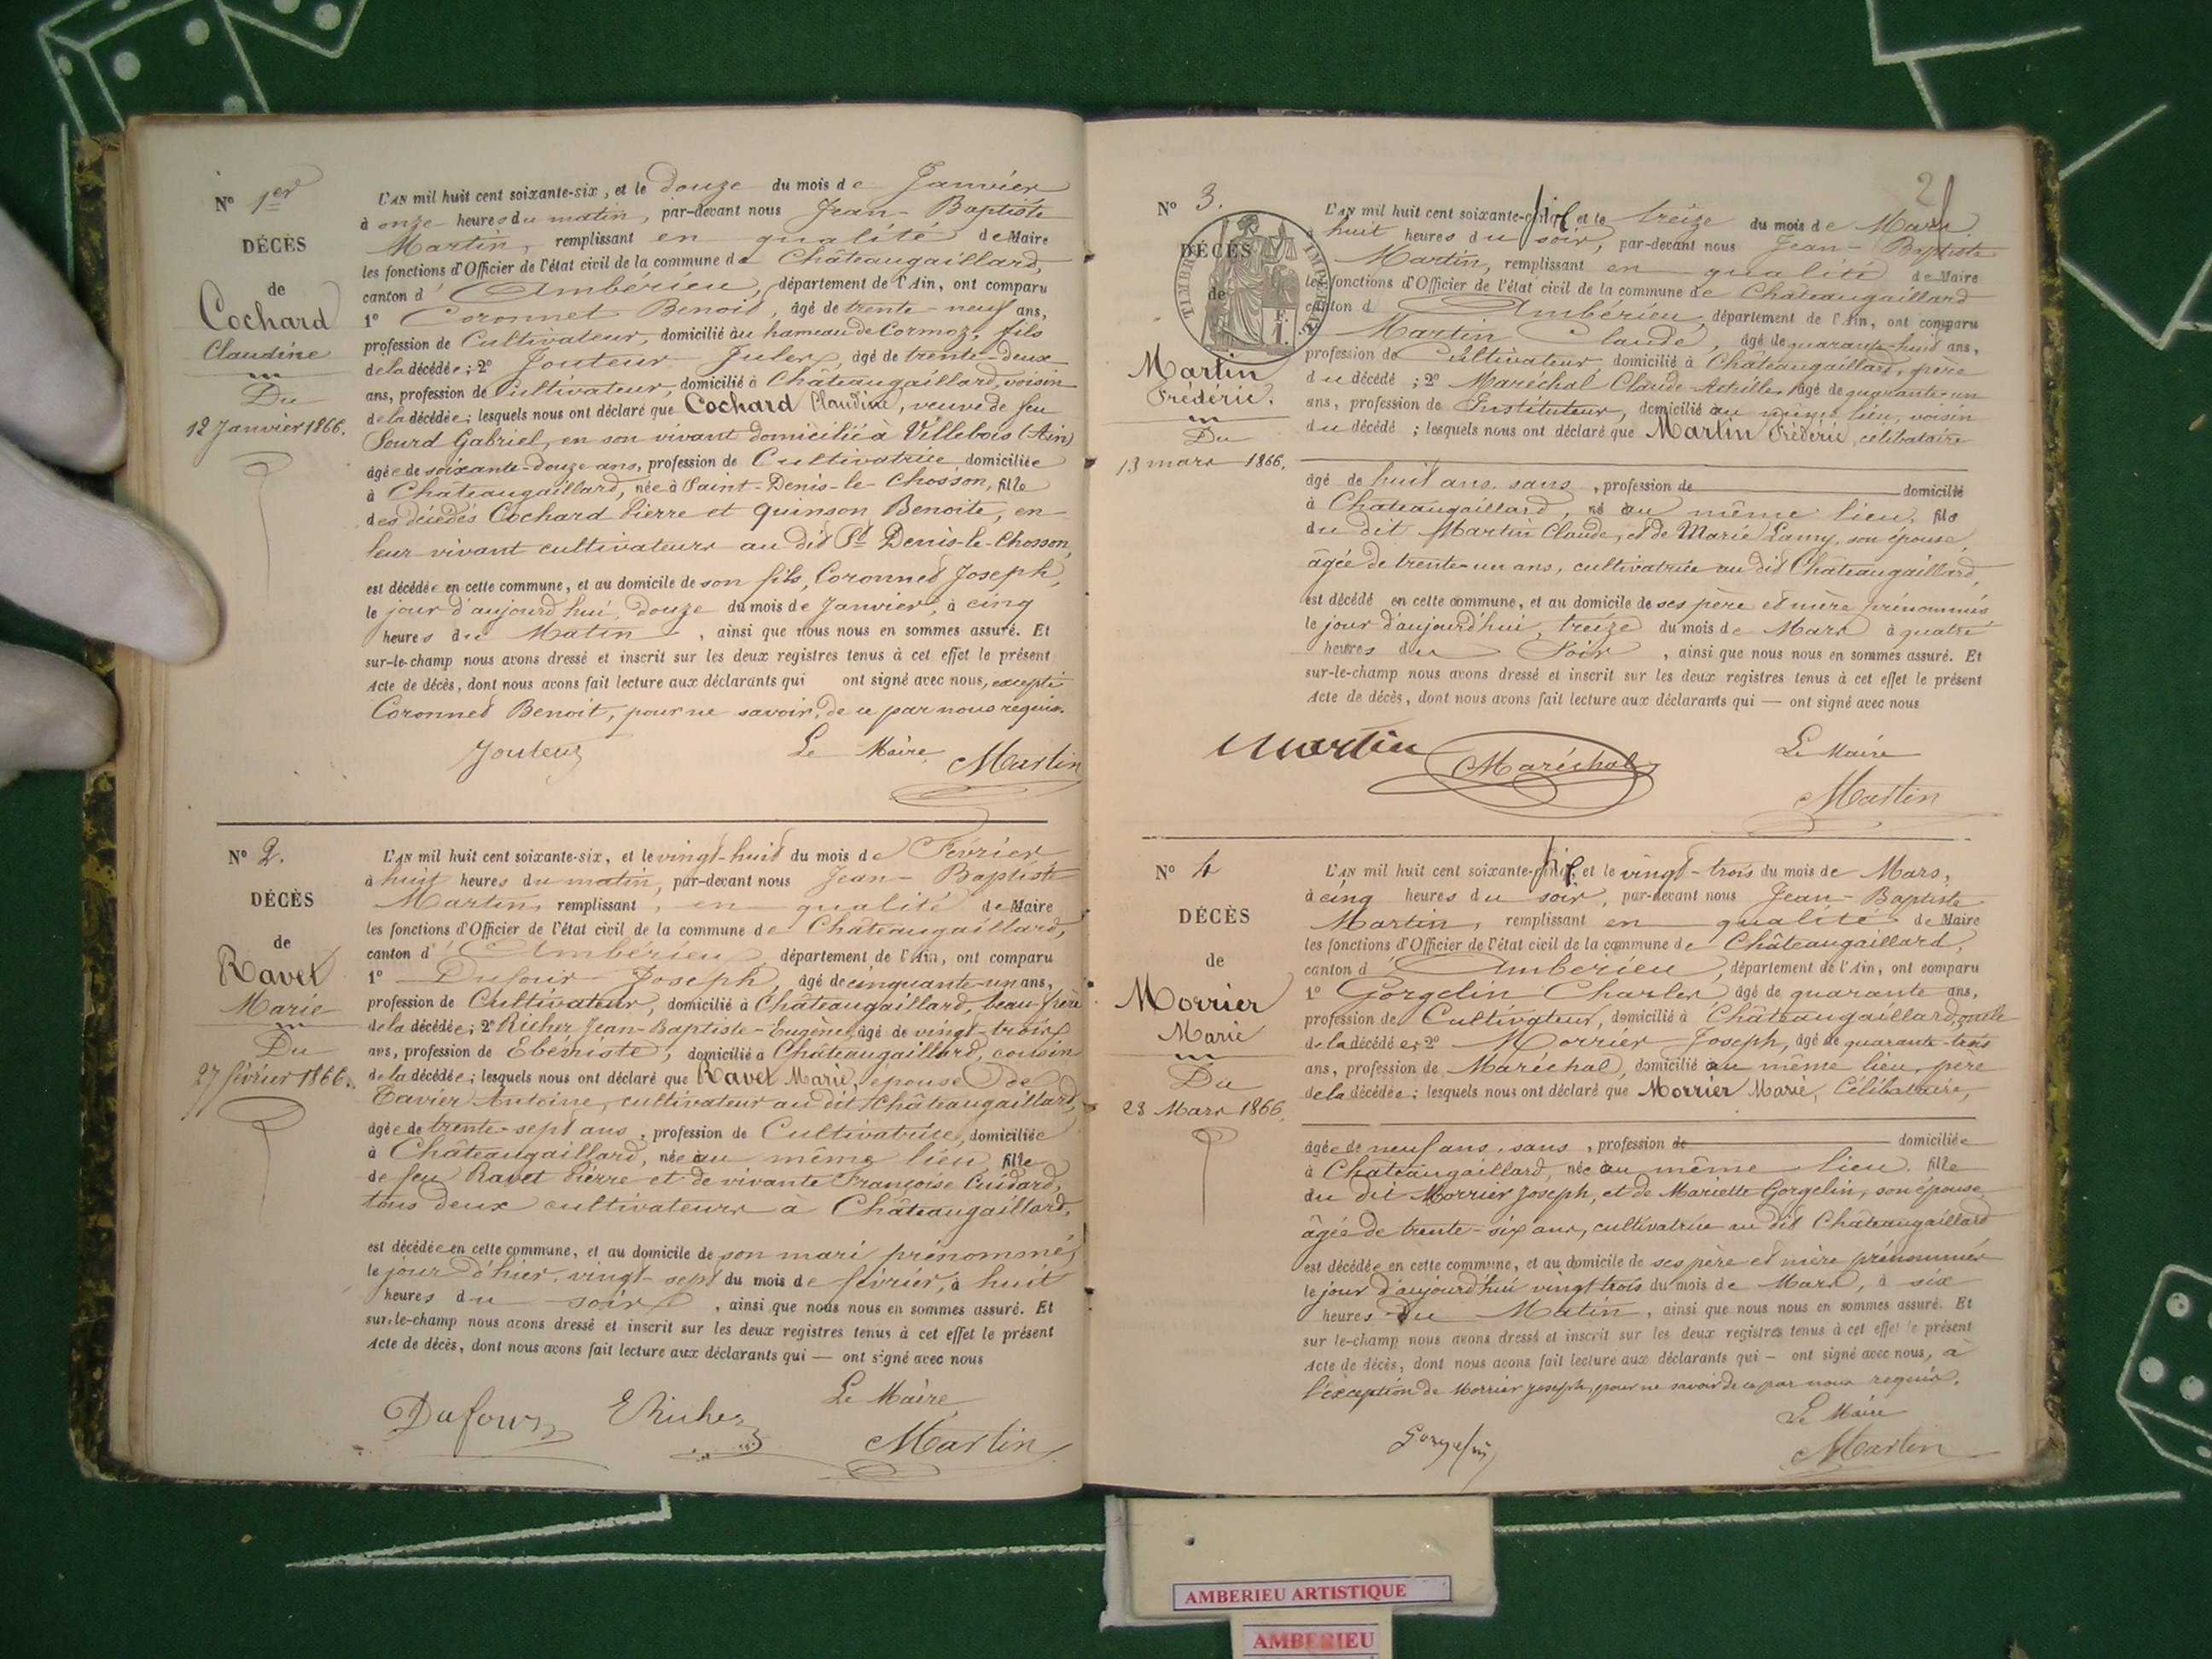 N° 1er
DÉCÈS
de
Cochard
Claudine
Du
12 Janvier 1866.
L'AN mil huit cent soixante-six, et le douze du mois de Janvier
à onze heures du matin, par-devant nous Jean-Baptiste
Martin, remplissant en qualité de Maire
les fonctions d'Officier de l'état civil de la commune de Châteaugaillard,
canton d'Ambérieu, département de l'Ain, ont comparu
1° Coronnet Benoit, âgé de trente-neuf ans,
profession de Cultivateur, domicilié au hameau de Cormoz, fils
de la décédée; 2° Jouteur Jules, âgé de trente-deux
ans, profession de Cultivateur, domicilié à Châteaugaillard, voisin
de la décédée; lesquels nous ont déclaré que Cochard Claudine, veuve de feu
Sourd Gabriel, en son vivant domicilié à Villebois (Ain)
âgée de soixante-douze ans, profession de Cultivatrice, domiciliée
à Châteaugaillard, née à Saint-Denis-le-Chosson, fille
des décédés Cochard Pierre et Quinson Benoite, en
leur vivant cultivateurs au dit St Denis-le-Chosson,
est décédée en cette commune, et au domicile de son fils, Coronnet Joseph,
le jour d'aujourd'hui, douze du mois de Janvier, à cinq
heures du Matin, ainsi que nous nous en sommes assuré. Et
sur-le-champ nous avons dressé et inscrit sur les deux registres tenus à cet effet le présent
Acte de décès, dont nous avons fait lecture aux déclarants qui ont signé avec nous, excepté
Coronnet Benoit, pour ne savoir, de ce par nous requis.
Jouteur Le Maire Martin
N° 2.
DÉCÈS
de
Ravet
Marie
Du
27 février 1866.
L'AN mil huit cent soixante-six, et le vingt-huit du mois de Février
à huit heures du matin, par-devant nous Jean-Baptiste
Martin, remplissant, en qualité de Maire
les fonctions d'Officier de l'état civil de la commune de Châteaugaillard,
canton d'Ambérieu, département de l'Ain, ont comparu
1° Dufour Joseph, âgé de cinquante-un ans,
profession de Cultivateur, domicilié à Châteaugaillard, beau-frère
de la décédée; 2° Richer Jean-Baptiste-Eugène, âgé de vingt-trois
ans, profession de Ebéniste, domicilié à Châteaugaillard, cousin
de la décédée; lesquels nous ont déclaré que Ravet Marie, épouse de
Tavier Antoine, cultivateur au dit Châteaugaillard,
âgée de trente-sept ans, profession de Cultivatrice, domiciliée
à Châteaugaillard, née au même lieu, fille
de feu Ravet Pierre et de vivante Françoise Cuidard,
tous deux cultivateurs à Châteaugaillard,
est décédée en cette commune, et au domicile de son mari prénommé,
le jour d'hier, vingt-sept du mois de février, à huit
heures du soir, ainsi que nous nous en sommes assuré. Et
sur-le-champ nous avons dressé et inscrit sur les deux registres tenus à cet effet le présent
Acte de décès, dont nous avons fait lecture aux déclarants qui — ont signé avec nous
Le Maire
Dufour E Richer Martin
2
N° 3.
DÉCÈS
de
TIMBRE IMPERIAL
1 F.
Martin
Frédéric.
Du
13 mars 1866.
L'AN mil huit cent soixante-six et le treize du mois de Mars
à huit heures du soir, par-devant nous Jean-Baptiste
Martin, remplissant en qualité de Maire
les fonctions d'Officier de l'état civil de la commune de Châteaugaillard
canton d'Ambérieu, département de l'Ain, ont comparu
Martin Claude, âgé de quarante-huit ans,
profession de Cultivateur, domicilié à Châteaugaillard, père
du décédé; 2° Maréchal Claude-Achille, âgé de quarante-un
ans, profession de Instituteur, domicilié au même lieu, voisin
du décédé; lesquels nous ont déclaré que Martin Frédéric, célibataire
âgé de huit ans, sans, profession de domicilié
à Châteaugaillard, né au même lieu, fils
du dit Martin Claude, et de Marie Lamy, son épouse,
âgée de trente-un ans, cultivatrice au dit Châteaugaillard,
est décédé en cette commune, et au domicile de ses père et mère prénommés
le jour d'aujourd'hui, treize du mois de Mars à quatre
heures du Soir, ainsi que nous nous en sommes assuré. Et
sur-le-champ nous avons dressé et inscrit sur les deux registres tenus à cet effet le présent
Acte de décès, dont nous avons fait lecture aux déclarants qui — ont signé avec nous
Martin Maréchal Le Maire
Martin
N° 4
DÉCÈS
de
Morrier
Marie
Du
23 Mars 1866.
L'AN mil huit cent soixante-six, et le vingt-trois du mois de Mars,
à cinq heures du soir, par-devant nous Jean-Baptiste
Martin, remplissant en qualité de Maire
les fonctions d'Officier de l'état civil de la commune de Châteaugaillard,
canton d'Ambérieu, département de l'Ain, ont comparu
1° Gorgelin Charles, âgé de quarante ans,
profession de Cultivateur, domicilié à Châteaugaillard, oncle
de la décédée; 2° Morrier Joseph, âgé de quarante-trois
ans, profession de Maréchal, domicilié au même lieu, père
de la décédée; lesquels nous ont déclaré que Morrier Marie, Célibataire,
âgée de neuf ans, sans, profession de domiciliée
à Châteaugaillard, née au même lieu, fille
du dit Morrier Joseph, et de Mariette Gorgelin, son épouse,
âgée de trente-six ans, cultivatrice au dit Châteaugaillard
est décédée en cette commune, et au domicile de ses père et mère prénommés
le jour d'aujourd'hui vingt trois du mois de Mars, à six
heures du Matin, ainsi que nous nous en sommes assuré. Et
sur le-champ nous avons dressé et inscrit sur les deux registres tenus à cet effet le présent
Acte de décès, dont nous avons fait lecture aux déclarants qui — ont signé avec nous, à
l'exception de Morrier Joseph, pour ne savoir de ce par nous requis.
Le Maire
Gorgelin Martin
AMBERIEU ARTISTIQUE
AMBERIEU